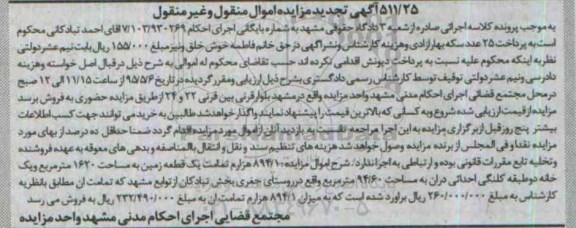 ۵۱۱/۲۵ آگهی تجدید مزایده اموال منقول و غیر منقول
به موجب پرونده کلاسه اجرائی صادره از شعبه ۳ دادگاه حقوقی مشهد به شماره بایگانی اجرای احکام ۷۱۰۲/۹۳۰۲۶۹ آقای احمد تبادکانی محکوم
است به پرداخت ۲۵ عدد سکه بهار آزادی و هزینه کارشناس و نشر آگهی در حق خانم فاطمه خوش خلق و نیز مبلغ ۱۵۵/۰۰۰ ریال بابت نیم عشر دولتی
نظر به اینکه محکوم علیه نسبت به پرداخت دیونش اقدامی نکرده اند حسب تقاضای محکوم له اموالی به شرح ذیل در قبال اصل خواسته و هزینه
دادرسی و نیم عشر دولتی توقیف توسط کارشناس رسمی دادگستری بشرح ذیل ارزیابی و مقرر گردیده در تاریخ ۹۵/۵/۶ از ساعت ۱۱/۱۵ الی ۱۲ صبح
در محل مجتمع قضائی اجرای احکام مدنی مشهد واحد مزایده واقع در مشهد بلوار قرنی بین قرنی ۲۲ و ۲۴ از طریق مزایده حضوری به فروش برسد
مزایده از قیمت ارزیابی شده شروع و به کسانی که بالاترین قیمت را پیشنهاد نمایند واگذار خواهد شد طالبین به خرید می توانند جهت کسب اطلاعات
بیشتر پنج روز قبل از برگزاری مزایده به این اجرا مراجعه تا نسبت به بازدید آنان از اموال مورد مزایده اقدام گردد ضمنا حداقل ده درصد از بهای مورد
مزایده نقدا و فی المجلس از برنده مزایده وصول خواهد شد هزینه های تنظیم سند و نقل و انتقال بالمناصفه و بدهی های معوقه به عهده فروشنده
و تخلیه تابع مقررات قانونی بوده و ارتباطی به اجرا ندارد: شرح اموال مزایده: ۸۹۴/۱ هزارم تمامت یک قطعه زمین به مساحت ۱۶۲۰ مترمربع و یک
خانه دو طبقه کلنگی احداثی در آن به مساحت ۹۴/۶۰ مترمربع واقع در روستای جعفری بخش تبادکان از توابع مشهد که تمامت آن مطابق با نظریه
کارشناس به مبلغ ۲۶۰/۰۰۰/۰۰۰ ریال برآورد شده است که به میزان ۸۹۴/۱ هزارم تمامت آن به مبلغ ۲۳۲/۴۹۰/۰۰۰ ریال به فروش می رسد
مجتمع قضایی اجرای احکام مدنی مشهد واحد مزایده